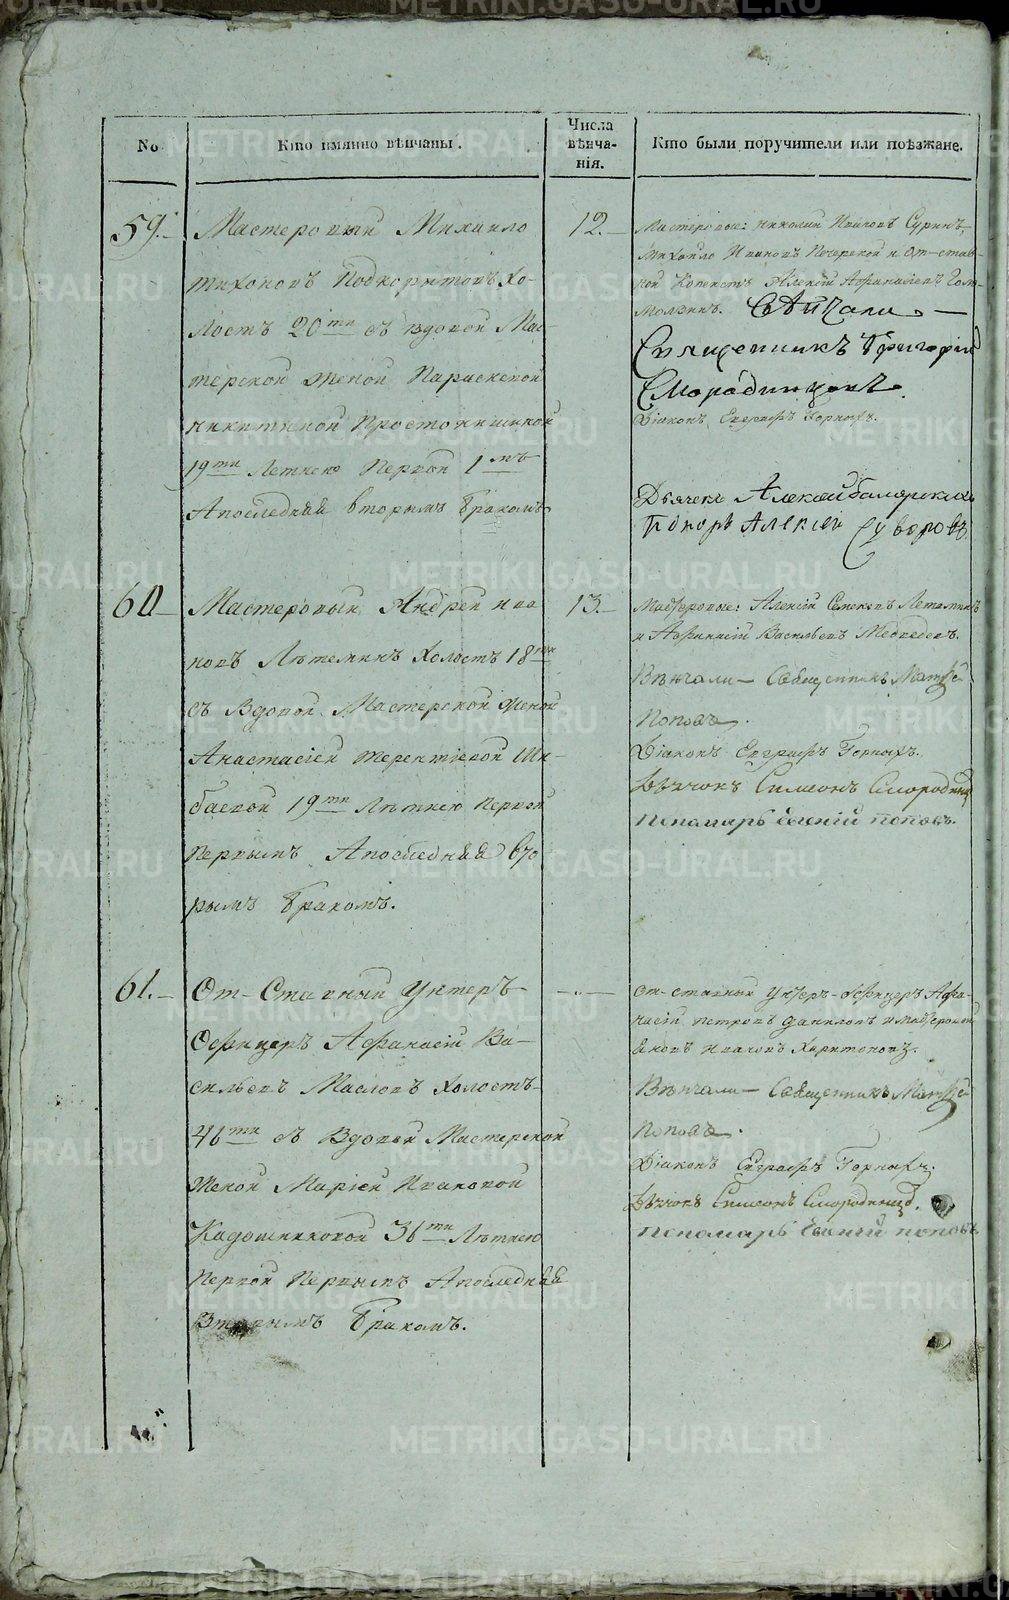 No
Кто имянно вѣнчаны.
Числа
вѣнча-
нія.
Кто были поручители или поѣзжане.
59.
Мастеровый Михайло
Тихоновъ Подкорытовъ хо-
лостъ 20ти съ вдовой Мас-
терской женой Параскевой
Никитиной
19ти Летнею Первой 1мъ
Апоследняя вторымъ бракомъ
12.
Мастеровые: Николай Ивановъ Суринъ,
Михайло Ивановъ и От-став-
ной Копеистъ Алексей Афанасьевъ
Священникъ Григорій
Смородинцовъ
Діаконъ Евграфъ Горныхъ.
Дьячекъ Алексей
Алексей Суворовъ
60
Мастеровый Андрей Ива
новъ Лѣтеминъ Холостъ 18ти
съ Вдовой Мастерской Женой
Анастасіей Терентіевой Ши-
баевой 19ти Лѣтнею Первой
Первымъ Апоследняя вто-
рымъ бракомъ.
13.
Мастеровые: Алексій Семеновъ Летеминъ
и Афанасій Васильевъ Медведевъ.
Вѣнчали — Священникъ Матвѣй
Поповъ.
Діаконъ Евграфъ Горныхъ.
Дьячокъ Симеонъ Смородинц
Пономарь Евгеній Поповъ.
61.
От-Ставный Унтеръ
Офицеръ Афанасій Ва-
сильевъ Масловъ Холостъ
46ти съ Вдовой Мастерской
Женой Маріей Ивановой
Кадошниковой 36ти Лѣтнею
Первой Первымъ Апоследняя
Вторымъ бракомъ.
От-ставный Унтеръ-Офицеръ Афа-
насій Петровъ Даниловъ и Мастеровой
Ивановъ Харитоновъ.
Вѣнчали — Священникъ Матвѣй
Поповъ.
Діаконъ Евграфъ Горныхъ.
Дьячокъ Симеонъ Смородинц.
Пономарь Евгеній Поповъ
METRIKI.GASO-URAL.RU